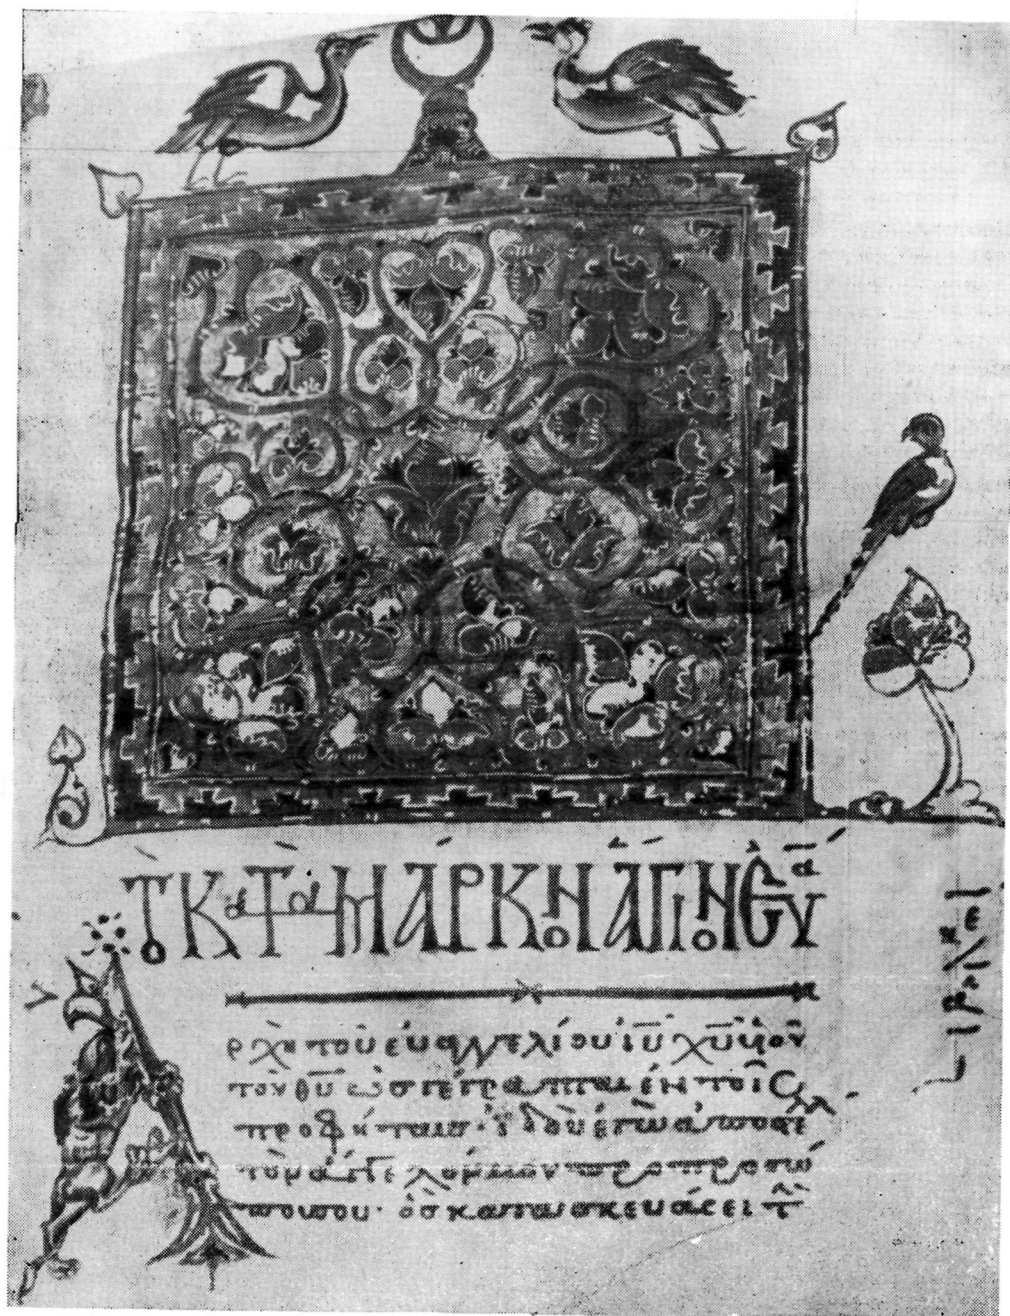 Τὸ Κατὰ Μάρκον ἅγιον εὐα
Α
ρχὴ τοῦ εὐαγγελίου ἰυ χυ ὑιοῦ
τοῦ θυ ὡς γέγραπται ἐν τοῖς
προφήταις· ἰδοὺ ἐγὼ ἀποστέ
προ προσώ
που σου· ὃς κατασκευάσει τὴ